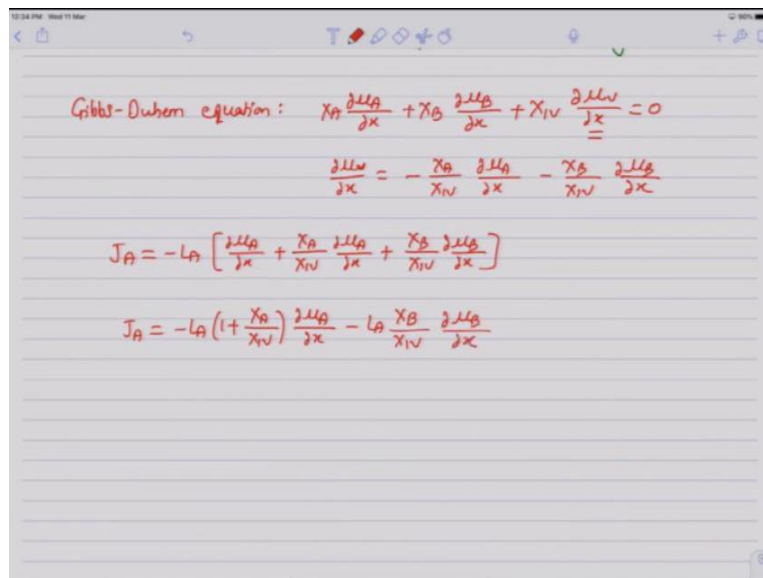 12:34 PM Wed 11 Mar 90%
Gibbs-Duhem equation: X_A ∂μ_A/∂x + X_B ∂μ_B/∂x + X_IV ∂μ_V/∂x = 0
∂μ_V/∂x = - X_A/X_IV ∂μ_A/∂x - X_B/X_IV ∂μ_B/∂x
J_A = -L_A [∂μ_A/∂x + X_A/X_IV ∂μ_A/∂x + X_B/X_IV ∂μ_B/∂x]
J_A = -L_A (1 + X_A/X_IV) ∂μ_A/∂x - L_A X_B/X_IV ∂μ_B/∂x